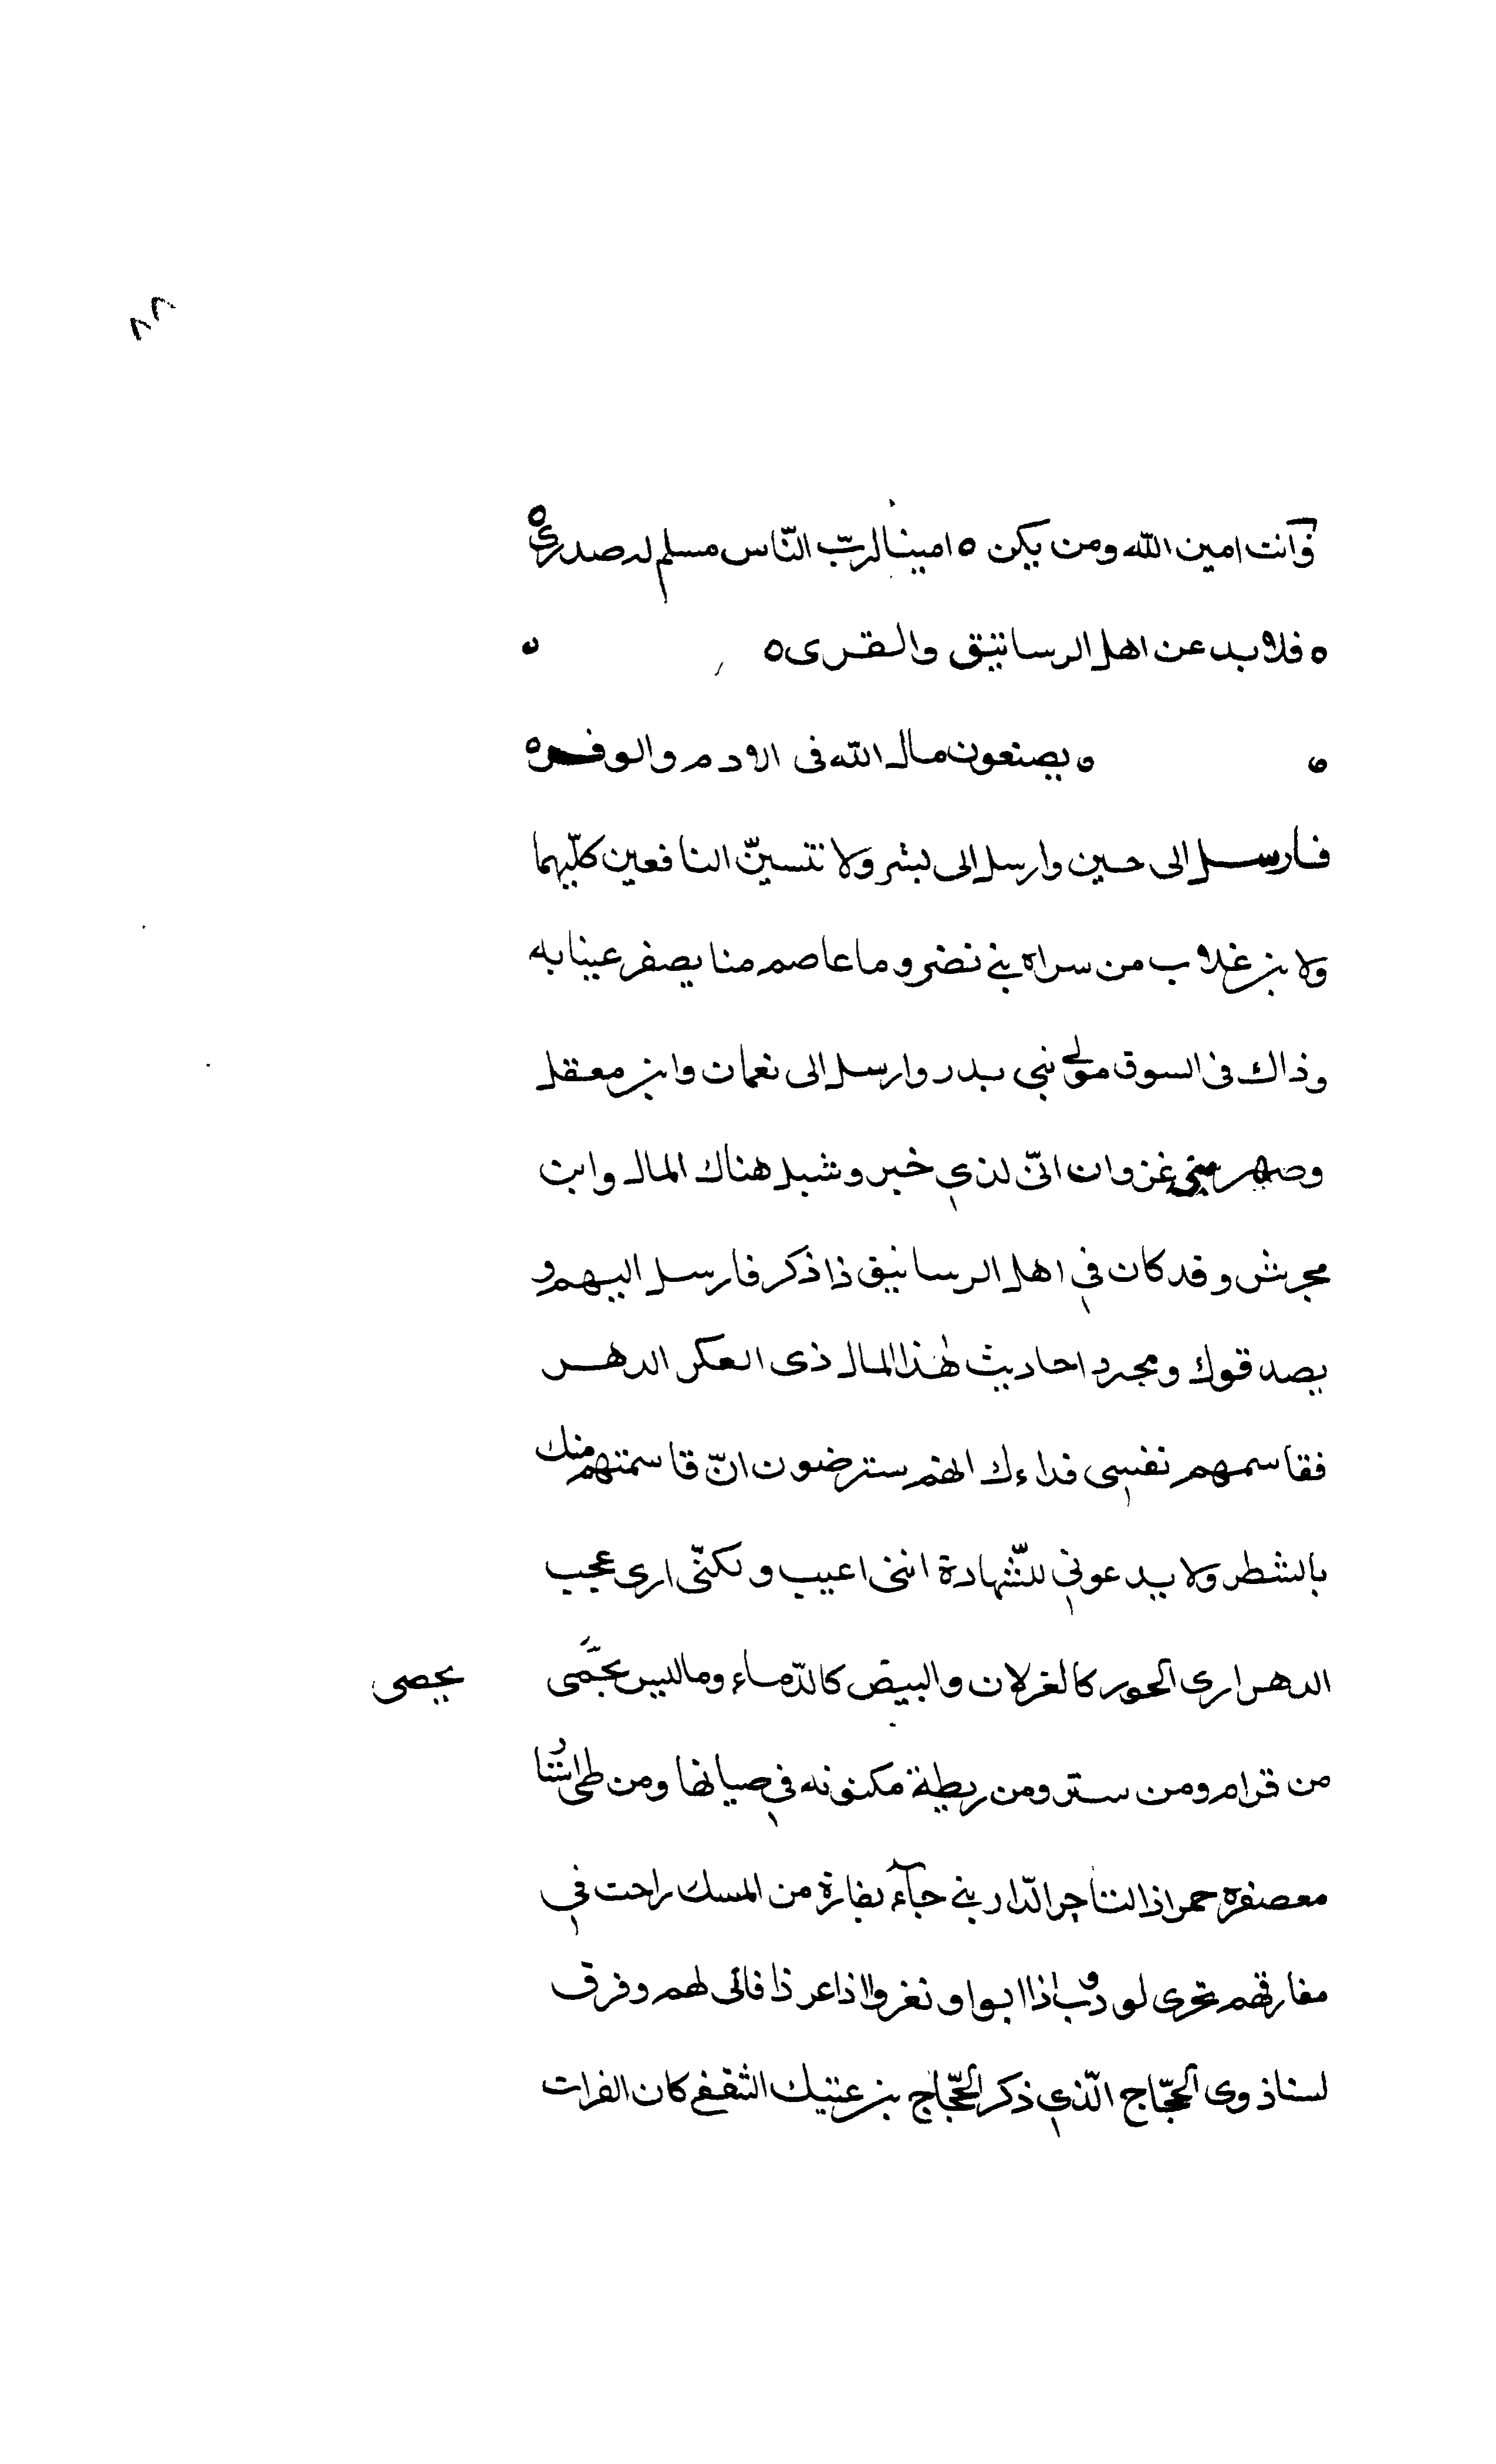 ٨٨
وانت امين الله ومن يكن ه امينا لرب النّاس مسلم له صدرى ه
ه فلا بد عن اهل الرساتيق والقرى ه
ه يصنعون مال الله فى الادم والوفره
فارسل الى حسين وارسل الى بشر ولا تنسينّ النافعين كلّيهما
ولا بن غلاب من سراه بني نضر وما عاصم منا يصفر عينا به
وذاك فى السوق مولى بنى بدر وارسل الى نعمان وابن معقل
وصهر بنى غزوان انّى لذي خبر وشبل هناك المال وابن
مجرش وقد كان في اهل الرساتيق ذا ذكر فارسل اليهم و
يصدقوك ومجرد احاديث لهذا المال ذى العكر الدهر
فقاسمهم نفسي فداءك انهم سترضون انّ قاسمتهم منك
بالشطر ولا يدعوني للشّهادة اننى اعيب ولكنّى ارى عجب
الدهر ارى الحور كالغزلان والبيض كالدّماء وما ليس يحصّى
يحصى
من قرام ومن ستر ومن ريطة مكنونه في صيانها ومن طى اشنا
معصفره حمر اذا التاجر الدّاريني جآء بفارة من المسك راحت في
مفارقهم تجرى لوؤب اذا ابوا ونغزوا اذا غر ذا فانى لهم وفرق
لسنا ذوى الحجّاج الّذي ذكر الحجّاج بن عتيك الثقفي كان الفرات